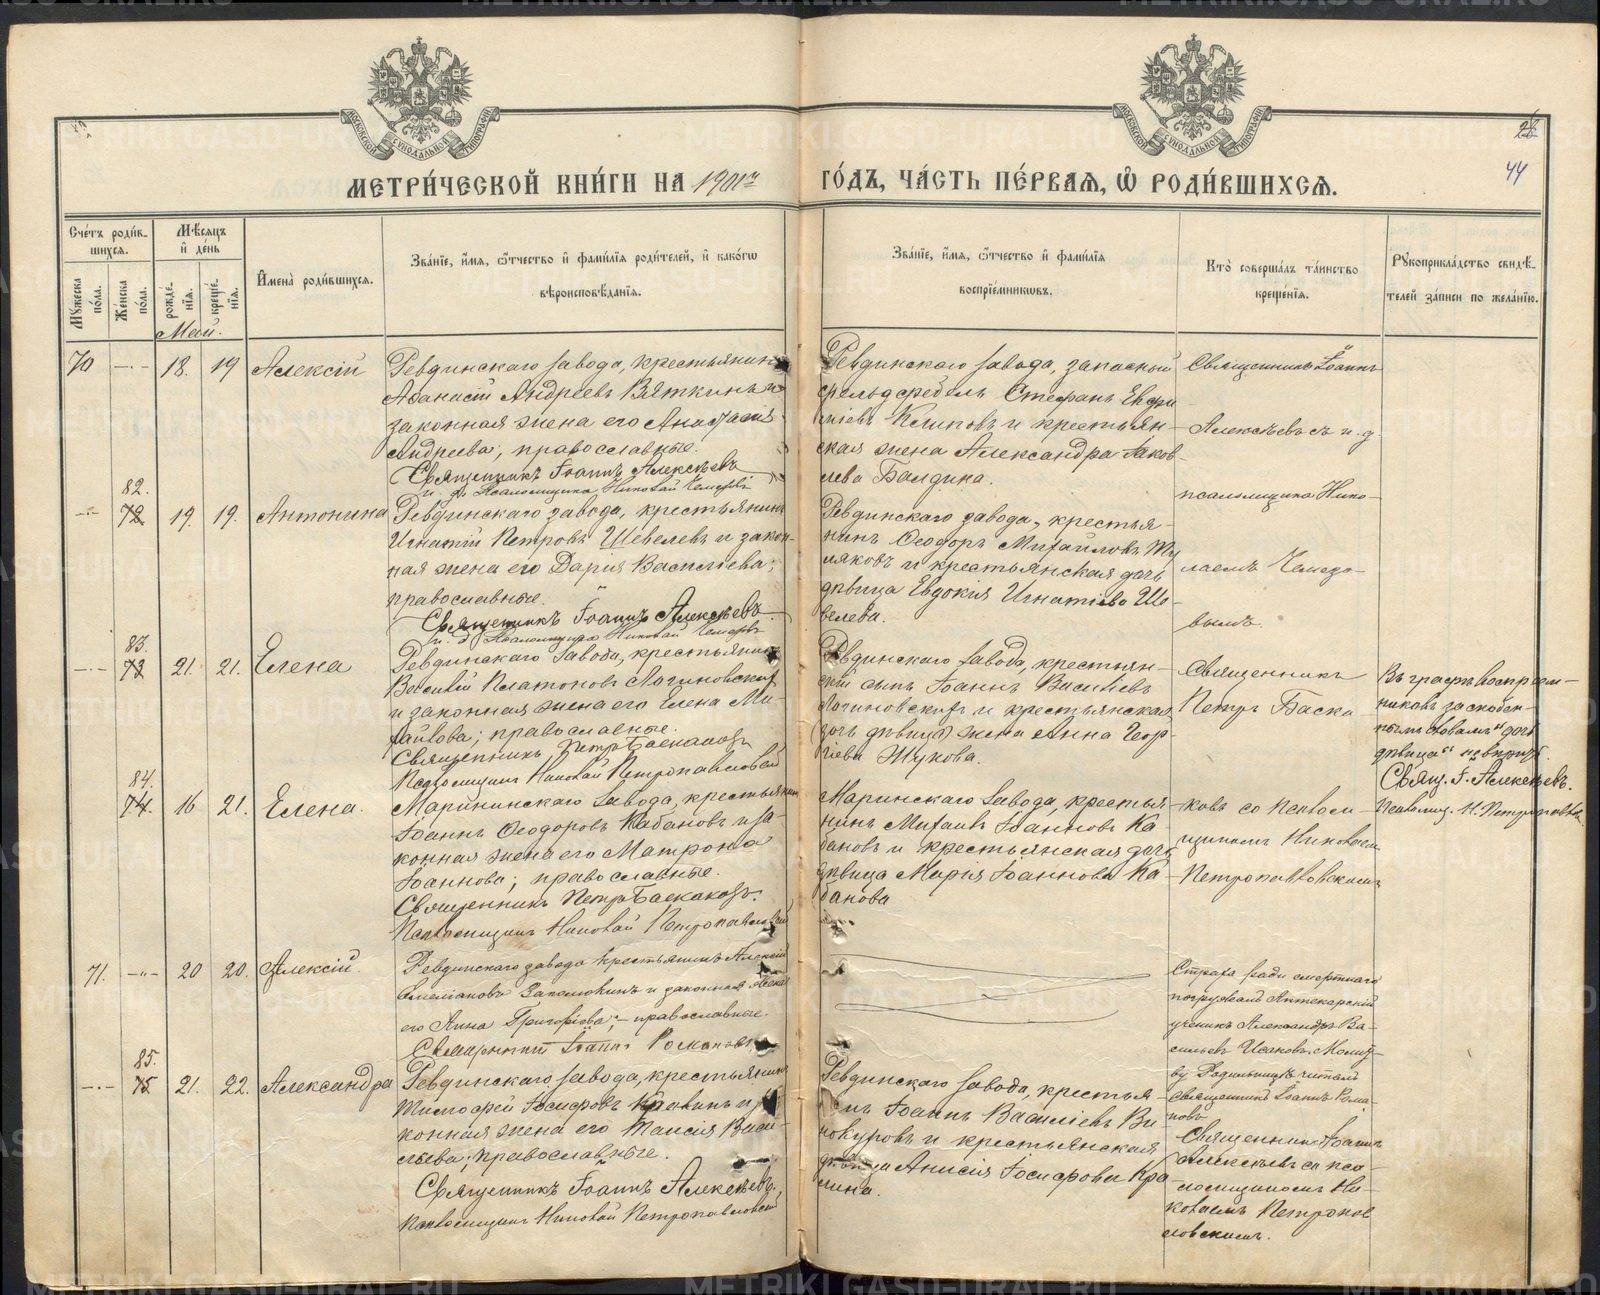 МЕТРИ́ЧЕСКОЙ КНИ́ГИ НА 1901й ГО́ДЪ, ЧА́СТЬ ПЕ́РВАѦ, Ѡ҆ РОДИ́ВШИХСѦ.
28
44
Сче́тъ роди́в-
шихсѧ.
Мꙋ́жеска по́ла.
Же́нска по́ла.
Мѣ́сѧцъ и҆ де́нь
рожде́-нїѧ.
креще́-нїѧ.
И҆мена̀ роди́вшихсѧ.
Зва́нїе, и҆́мѧ, ѻ҆́тчество и҆ фами́лїѧ роди́телей, и҆ како́гѡ
вѣроисповѣ́данїѧ.
Зва́нїе, и҆́мѧ, ѻ҆́тчество и҆ фами́лїѧ
воспрїе́мникѡвъ.
Кто̀ соверша́лъ та́инство
креще́нїѧ.
Рꙋкоприкла́дство свидѣ́-
телей за́писи по жела́нїю.
Май.
70 — 18. 19 Алексій
Ревдинскаго завода, крестьянинъ
Аѳанасій Андреевъ Вяткинъ и
законная жена его Анастасія
Андреева; православные.
Священникъ Іоаннъ Алексѣевъ
и. д. Псаломщика Николай
Ревдинскаго завода, запасный
фельдфебель Стефанъ Евфи-
міевъ Климовъ и крестьян-
ская жена Александра Яков-
лева Балдина.
Священникъ Іоаннъ
Алексѣевъ съ и. д.
псаломщика Нико-
лаемъ
82.
— 72 19. 19. Антонина
Ревдинскаго завода, крестьянинъ
Игнатій Петровъ Шевелевъ и закон-
ная жена его Дарія Васильева;
православные.
Священникъ Іоаннъ Алексѣевъ
и. д. Псаломщика Николай
Ревдинскаго завода, крестья-
нинъ Ѳеодоръ Михайловъ
и крестьянская дочь
дѣвица Евдокія Игнатіева Ше-
велева.
83.
— 73 21. 21. Елена
Ревдинскаго завода, крестьянинъ
Василій Платоновъ Логиновскихъ
и законная жена его Елена Ми-
хайлова; православные.
Священникъ Петръ Баскаковъ
Псаломщикъ Николай Петропавловскій
Ревдинскаго завода, крестьян-
скій сынъ Іоаннъ Васильевъ
Логиновскихъ и крестьянская
(дочь дѣвица) жена Анна Геор-
гіева Жукова.
Священникъ
Петръ Баска-
Въ графѣ воспріем-
никовъ заскобен-
нымъ словамъ "дочь
дѣвица" не вѣрить.
Свящ. І. Алексѣевъ.
Псаломщ. Н. Петропавлов
84.
— 74. 16 21. Елена.
Маріинскаго завода, крестьянинъ
Іоаннъ Ѳеодоровъ Кабановъ и за-
конная жена его Матрона
Іоаннова; православные.
Священникъ Петръ Баскаковъ.
Псаломщикъ Николай Петропавловскій
Маринскаго завода, крестья-
нинъ Михаилъ Іоанновъ Ка-
бановъ и крестьянская дочь
дѣвица Марія Іоаннова Ка-
банова
ковъ со псалом-
щикомъ Николаемъ
Петропавловскимъ
71. — 20 20. Алексій.
Ревдинскаго завода крестьянинъ Алексій
Емеліановъ и законная жена
его Анна Григоріева; православные.
Священникъ Іоаннъ Романовъ
Страха ради смертнаго
погружалъ Аптекарскій
ученикъ Александръ Ва-
сильевъ Исаковъ. Молит-
ву Родильницѣ читалъ
Священникъ Іоаннъ Рома-
новъ
85.
— 75 21. 22. Александра
Ревдинскаго завода, крестьянинъ
Тимофей Іосифовъ Кралинъ и за-
конная жена его Таисія Васи-
льева; православные.
Священникъ Іоаннъ Алексѣевъ.
Псаломщикъ Николай Петропавловскій
Ревдинскаго завода, крестья-
нинъ Іоаннъ Василіевъ Ви-
нокуровъ и крестьянская
дѣвица Анисія Іосифова Кра-
лина.
Священникъ Іоаннъ
Алексѣевъ съ пса-
ломщикомъ Ни-
колаемъ Петропав-
ловскимъ.
METRIKI.GASO-URAL.RU